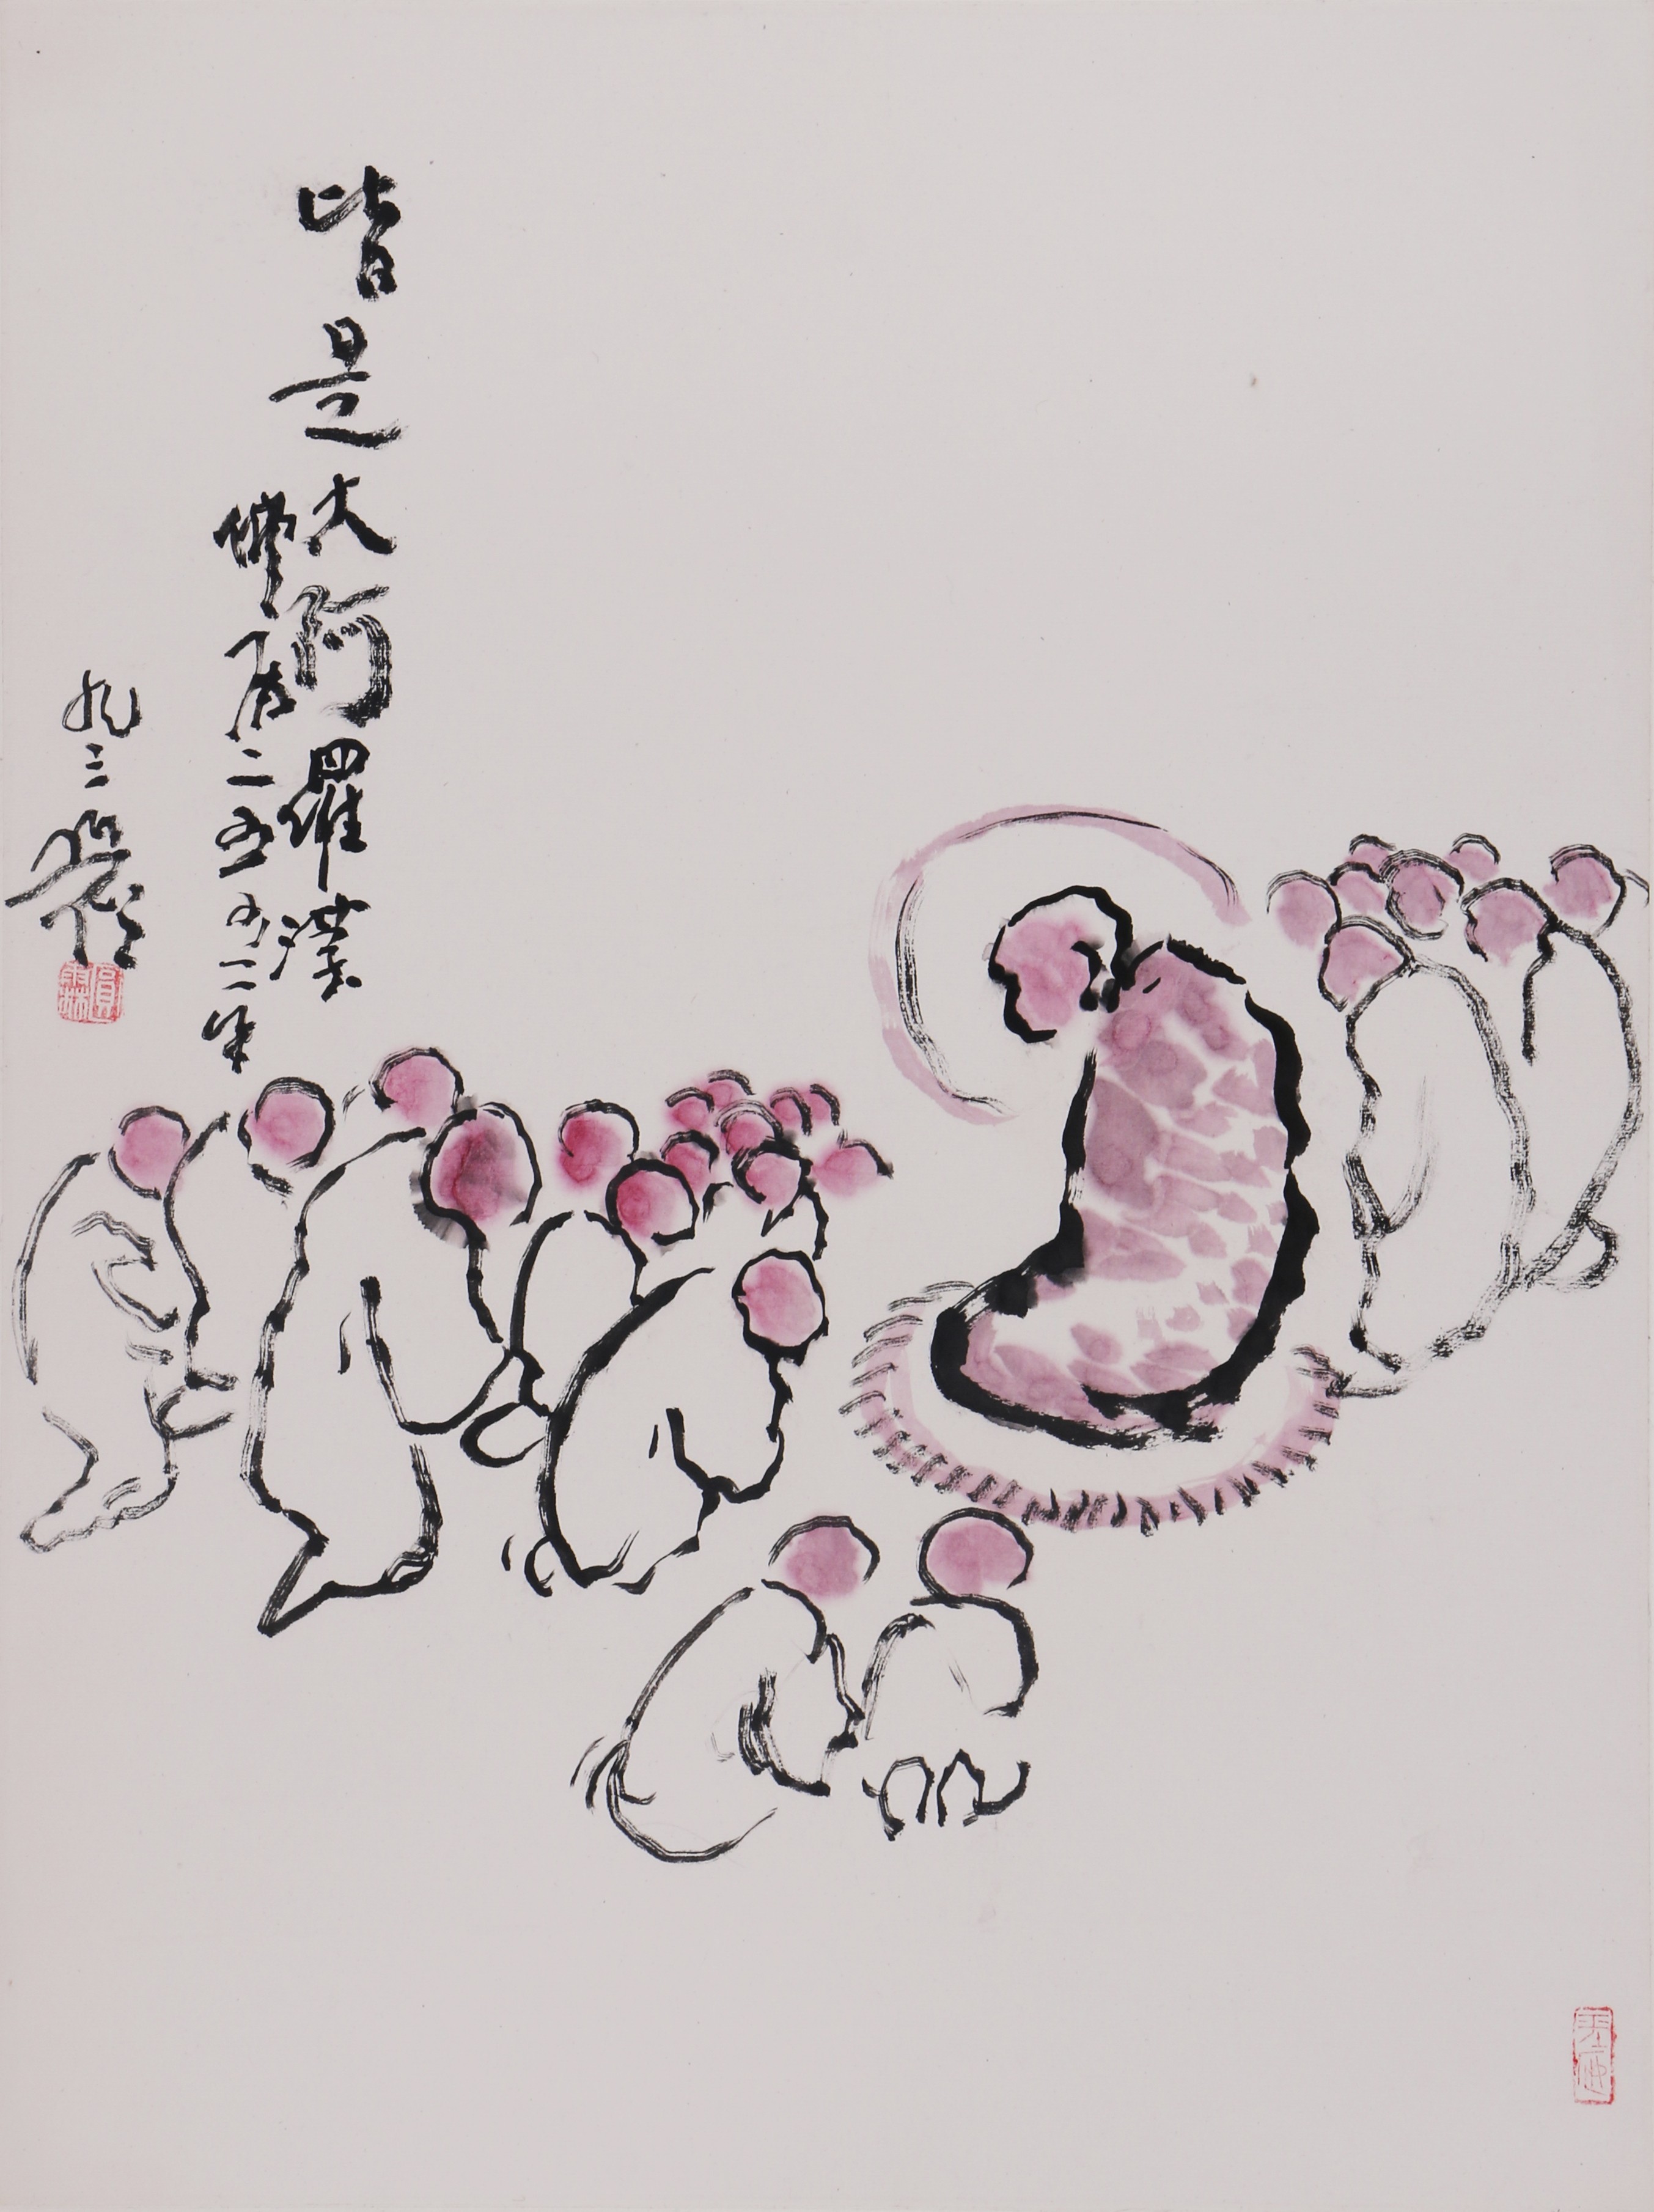 皆是大阿羅漢
佛曆二五五二年
九三
圓霖